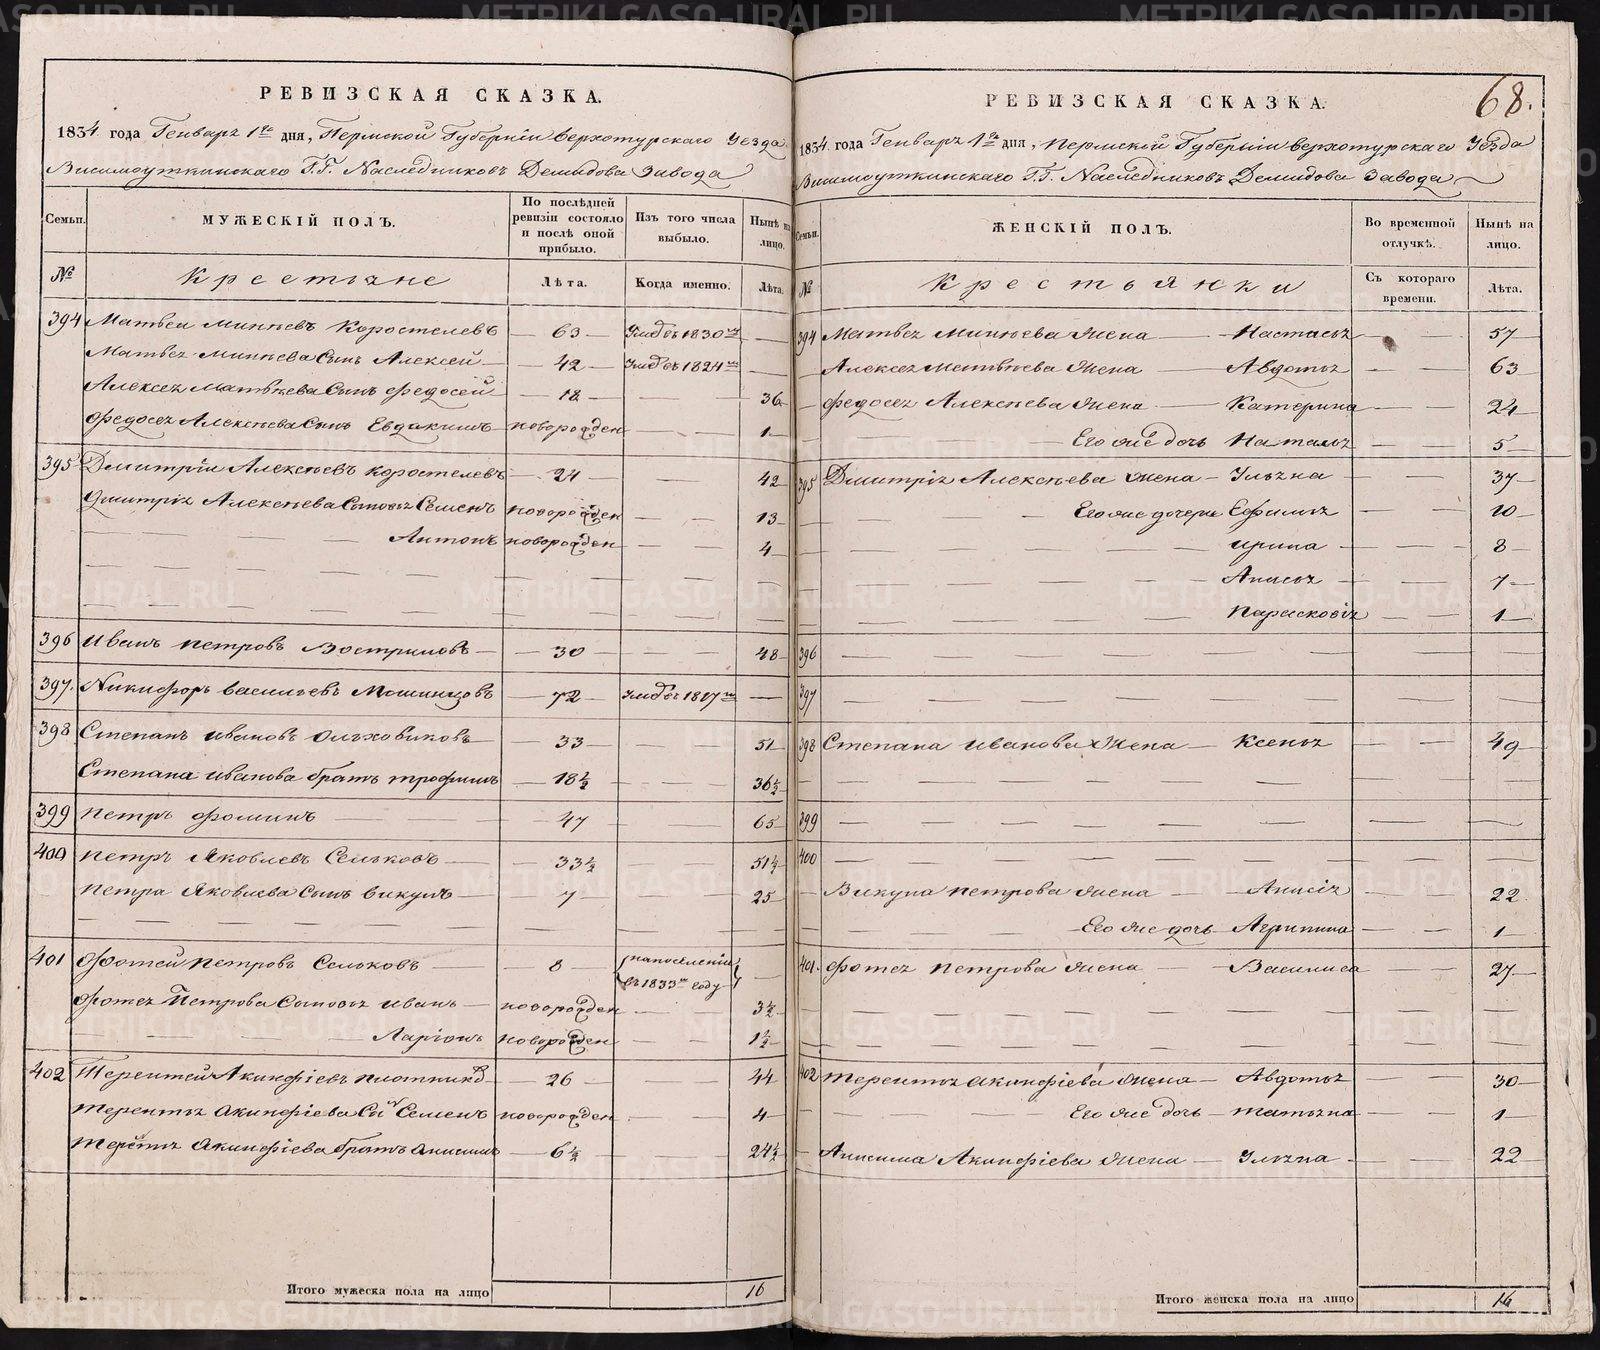 РЕВИЗСКАЯ СКАЗКА.
1834 года Генваря 1го дня, Пермской Губернiи верхотурскаго Уезда
Висимоуткинскаго Г.Г. Наследниковъ Демидова Завода
Семьи. МУЖЕСКІЙ ПОЛЪ. По послѣдней ревизіи состояло и послѣ оной прибыло. Изъ того числа выбыло. Нынѣ на лицо.
№ Крестьяне Лѣта. Когда именно. Лѣта.
394 Матвеи Минѣевъ Коростелевъ 63 Умре въ 1830м
Матвея Минѣева Сынъ Алексей 42 Умре въ 1824м
Алексея Матвѣева Сынъ Федосей 18 36
Федосея Алексѣева Сынъ Евдакимъ новорожден 1
395 Дмитрiи Алексѣевъ Коростелевъ 24 42
Дмитрiя Алексѣева Сыновья Семенъ новорожден 13
Антонъ новорожден 4
396 Иванъ Петровъ Востриковъ 30 48
397. Никифоръ васильевъ 72 Умре въ 1817м
398 Степанъ Ивановъ Ольховиковъ 33 51
Степана Иванова братъ трофимъ 18½ 36½
399 Петръ Фоминъ 47 65
400 Петръ Яковлевъ Сельковъ 33½ 51½
Петра Яковлева Сынъ викулъ 7 25
401 Фотей Петровъ Сельковъ 8 на поселенiи въ 1833м году
Фотея Петрова Сыновья Иванъ новорожден 3½
Ларiонъ новорожден 1½
402 Терентей Акинфiевъ плотников 26 44
Терентья Акинфiева Сын Семенъ новорожден 4
Терентья Акинфiева братъ Анисимъ 6½ 24½
Итого мужеска пола на лицо 16
68.
РЕВИЗСКАЯ СКАЗКА.
1834 года Генваря 1го дня, Пермской Губернiи верхотурскаго Уѣзда
Висимоуткинскаго Г.Г. Наследниковъ Демидова Завода
Семьи. ЖЕНСКІЙ ПОЛЪ. Во временной отлучкѣ. Нынѣ на лицо.
№ Крестьянки Съ котораго времени. Лѣта.
394 Матвея Минѣева жена Настасья 57
Алексея Матвѣева жена Авдотья 63
Федосея Алексѣева жена Катерина 24
Его же дочь Наталья 5
395 Дмитрiя Алексѣева жена Ульяна 37
Его же дочери Ефимья 10
Ирина 8
Анисья 7
Парасковiя 1
396
397
398 Степана Иванова жена Ксенья 49
399
400
Викула Петрова жена Анисiя 22
Его же дочь Агрипина 1
401. Фотея Петрова жена Василиса 27
402 Терентья Акинфiева жена Авдотья 30
Его же дочь Татьяна 1
Анисима Акинфiева жена Ульяна 22
Итого женска пола на лицо 16
METRIKI.GASO-URAL.RU